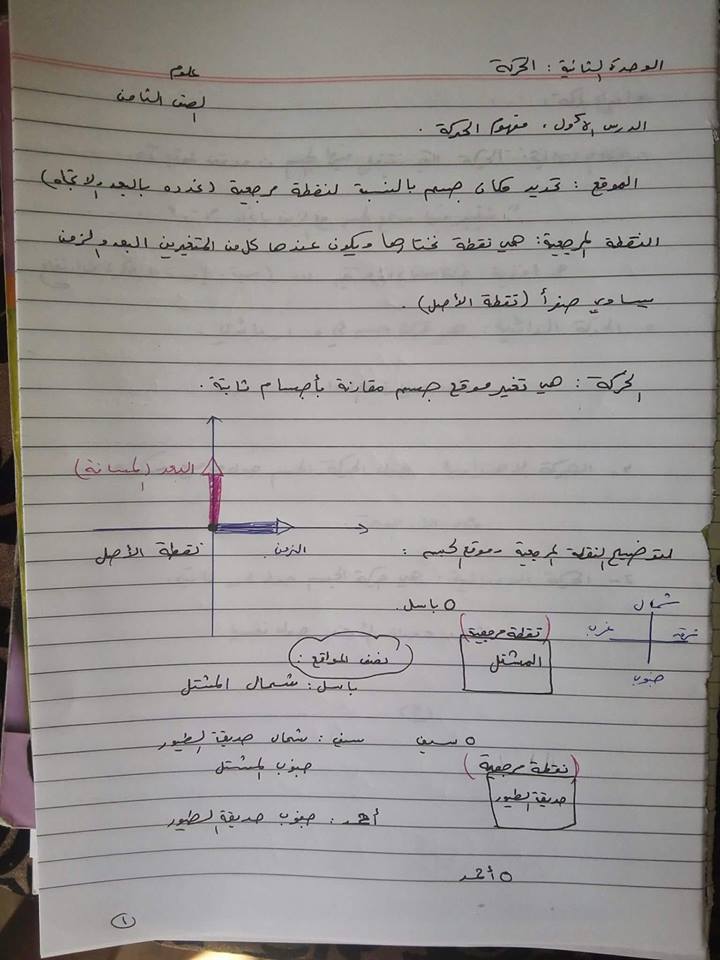 الوحدة الثانية : الحركة
علوم
الصف الثامن
الدرس الأول : مفهوم الحركة .
الموقع : تحديد مكان جسم بالنسبة لنقطة مرجعية (نحدده بالبعد والاتجاه)
النقطة المرجعية : هي نقطة نختارها ويكون عندها كل من المتغيرين البعد والزمن
يساوي صفراً (نقطة الأصل) .
الحركة : هي تغير موقع جسم مقارنة بأجسام ثابتة .
البعد (المسافة)
الزمن
نقطة الأصل
لتوضيح النقطة المرجعية وموقع الجسم :
شمال
غرب
شرق
جنوب
باسل .
(نقطة مرجعية)
المشتل
نصف المواقع :
باسل : شمال المشتل
سيف
سيف : شمال حديقة الطيور
جنوب المشتل
(نقطة مرجعية)
حديقة الطيور
أحمد : جنوب حديقة الطيور
أحمد
١